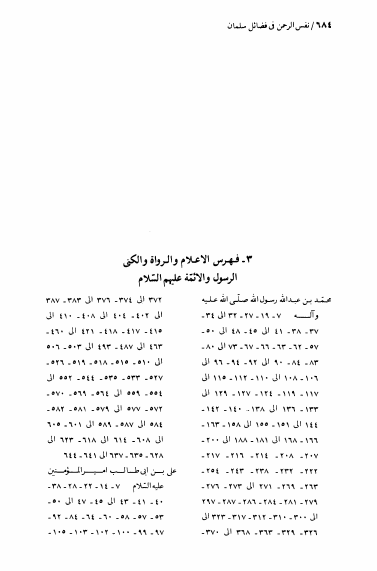 ٦٨٤/ نفس الرحمن في فضائل سلمان
٣ـ فهرس الاعلام والرواة والكنى
الرسول والائمّة عليهم السّلام
محمّد بن عبدالله رسول الله صلّى الله عليه
وآله ٧ـ ١٩ـ ٢٧ـ ٣٢ الى ٣٤ـ
٣٧ـ ٣٨ـ ٤١ الى ٤٥ـ ٤٨ الى ٥٠ـ
٥٧ـ ٦٢ـ ٦٣ـ ٦٦ـ ٦٧ـ ٧٣ الى ٨٠ـ
٨٣ـ ٨٤ـ ٩٠ الى ٩٢ـ ٩٤ـ ٩٦ الى
١٠٦ـ ١٠٨ الى ١١٠ـ ١١٢ـ ١١٥ الى
١١٧ـ ١١٩ـ ١٢٤ـ ١٢٧ـ ١٢٩ الى
١٣٣ـ ١٣٦ الى ١٣٨ـ ١٤٠ـ ١٤٢ـ
١٤٤ الى ١٥١ـ ١٥٥ الى ١٥٨ـ ١٦٣ـ
١٦٦ـ ١٦٨ الى ١٨١ـ ١٨٨ الى ٢٠٠ـ
٢٠٧ـ ٢٠٨ـ ٢١٤ـ ٢١٦ـ ٢١٧ـ
٢٢٢ـ ٢٣٢ـ ٢٣٨ـ ٢٤٣ـ ٢٥٤ـ
٢٦٣ـ ٢٦٩ـ ٢٧١ الى ٢٧٣ـ ٢٧٦ـ
٢٧٩ـ ٢٨١ـ ٢٨٤ـ ٢٨٦ـ ٢٨٧ـ ٢٩٧
الى ٣٠٠ـ ٣١٠ـ ٣١٢ـ ٣١٧ـ ٣٢٣ الى
٣٢٦ـ ٣٢٩ـ ٣٦٣ الى ٣٦٨ الى ٣٧٠ـ
٣٧٢ الى ٣٧٤ـ ٣٧٦ الى ٣٨٣ـ ٣٨٧
الى ٤٠٢ـ ٤٠٤ الى ٤٠٨ـ ٤١٠ الى
٤١٥ـ ٤١٧ـ ٤١٨ـ ٤٢١ الى ٤٦٠ـ
٤٦٣ الى ٤٨٧ـ ٤٩٣ الى ٥٠٣ـ ٥٠٦
الى ٥١٠ـ ٥١٥ـ ٥١٨ـ ٥١٩ـ ٥٢٦ـ
٥٢٧ـ ٥٣٣ـ ٥٣٥ـ ٥٤٤ـ ٥٥٢ الى
٥٥٤ـ ٥٥٩ الى ٥٦٤ـ ٥٦٩ـ ٥٧٠ـ
٥٧٢ـ ٥٧٧ الى ٥٧٩ـ ٥٨١ـ ٥٨٢ـ
٥٨٤ الى ٥٨٧ـ ٥٨٩ الى ٦٠١ـ ٦٠٥
الى ٦٠٨ـ ٦١٤ الى ٦١٨ـ ٦٢٣ الى
٦٢٨ـ ٦٣٥ـ ٦٣٧ الى ٦٤١ـ ٦٤٤
على بن ابى طالب اميرالمؤمنين
عليه السّلام ٧ـ ١٤ـ ٢٢ـ ٢٨ـ ٣٨ـ
٤٠ـ ٤١ـ ٤٣ الى ٤٥ـ ٤٧ الى ٥٠ـ
٥٣ـ ٥٧ـ ٥٨ـ ٦٠ـ ٦٤ـ ٨٤ـ ٩٢ـ
٩٧ـ ٩٩ـ ١٠٠ـ ١٠٢ـ ١٠٣ـ ١٠٥ـ